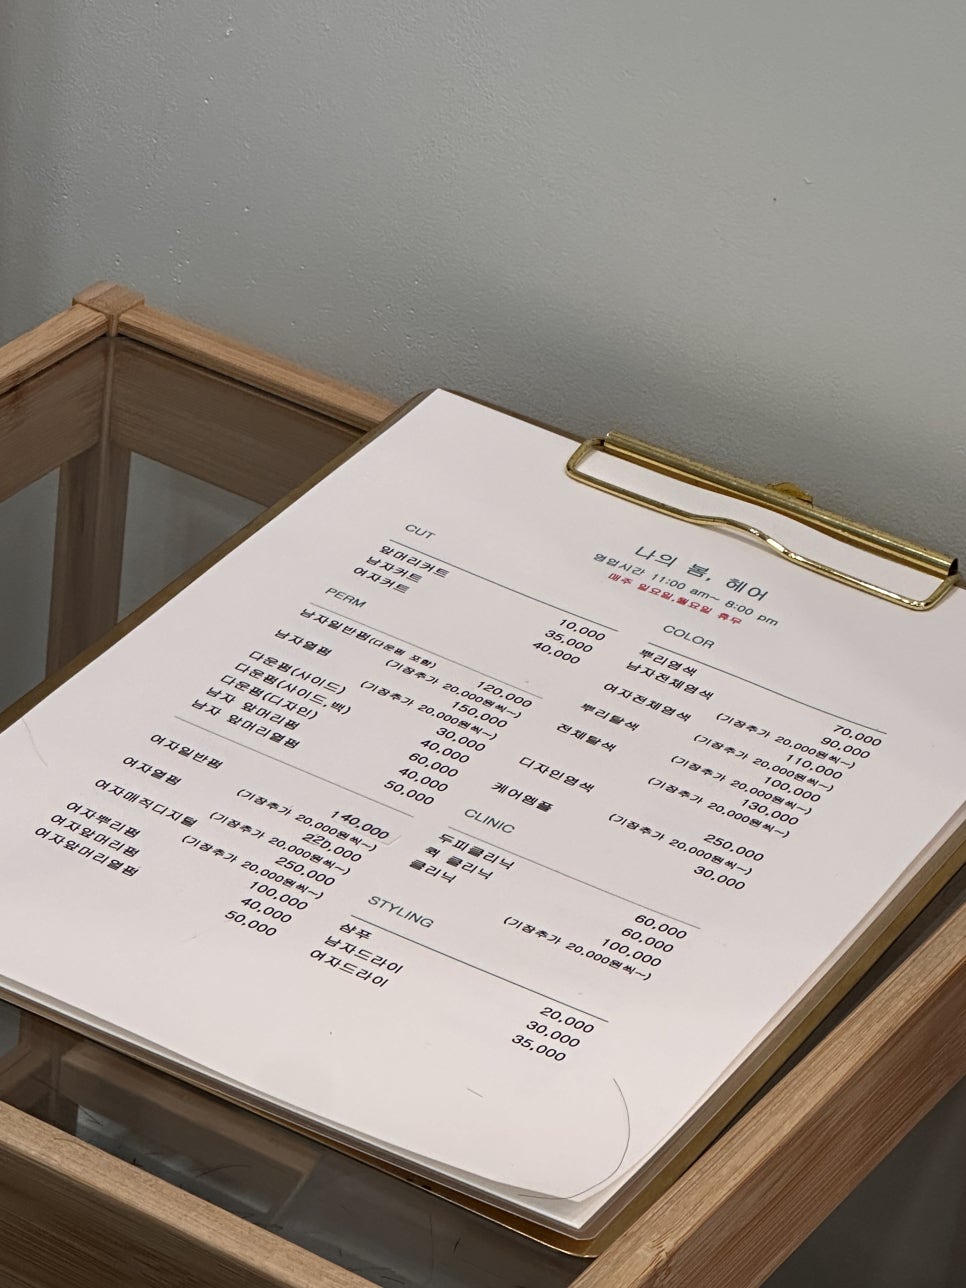 나의 봄, 헤어
영업시간 11:00 am~ 8:00 pm
매주 일요일,월요일 휴무
CUT
앞머리커트 10,000
남자커트 35,000
여자커트 40,000
PERM
남자일반펌(다운펌 포함) 120,000
(기장추가 20,000원씩~)
남자열펌 150,000
(기장추가 20,000원씩~)
다운펌(사이드) 30,000
다운펌(사이드,백) 40,000
다운펌(디자인) 60,000
남자 앞머리펌 40,000
남자 앞머리열펌 50,000
여자일반펌 140,000
(기장추가 20,000원씩~)
여자열펌 220,000
(기장추가 20,000원씩~)
여자매직디지털 250,000
(기장추가 20,000원씩~)
여자뿌리펌 100,000
여자앞머리펌 40,000
여자앞머리열펌 50,000
COLOR
뿌리염색 70,000
남자전체염색 90,000
(기장추가 20,000원씩~)
여자전체염색 110,000
(기장추가 20,000원씩~)
뿌리탈색 100,000
(기장추가 20,000원씩~)
전체탈색 130,000
(기장추가 20,000원씩~)
디자인염색 250,000
(기장추가 20,000원씩~)
케어앰플 30,000
CLINIC
두피클리닉 60,000
퀵 클리닉 60,000
클리닉 100,000
(기장추가 20,000원씩~)
STYLING
샴푸 20,000
남자드라이 30,000
여자드라이 35,000